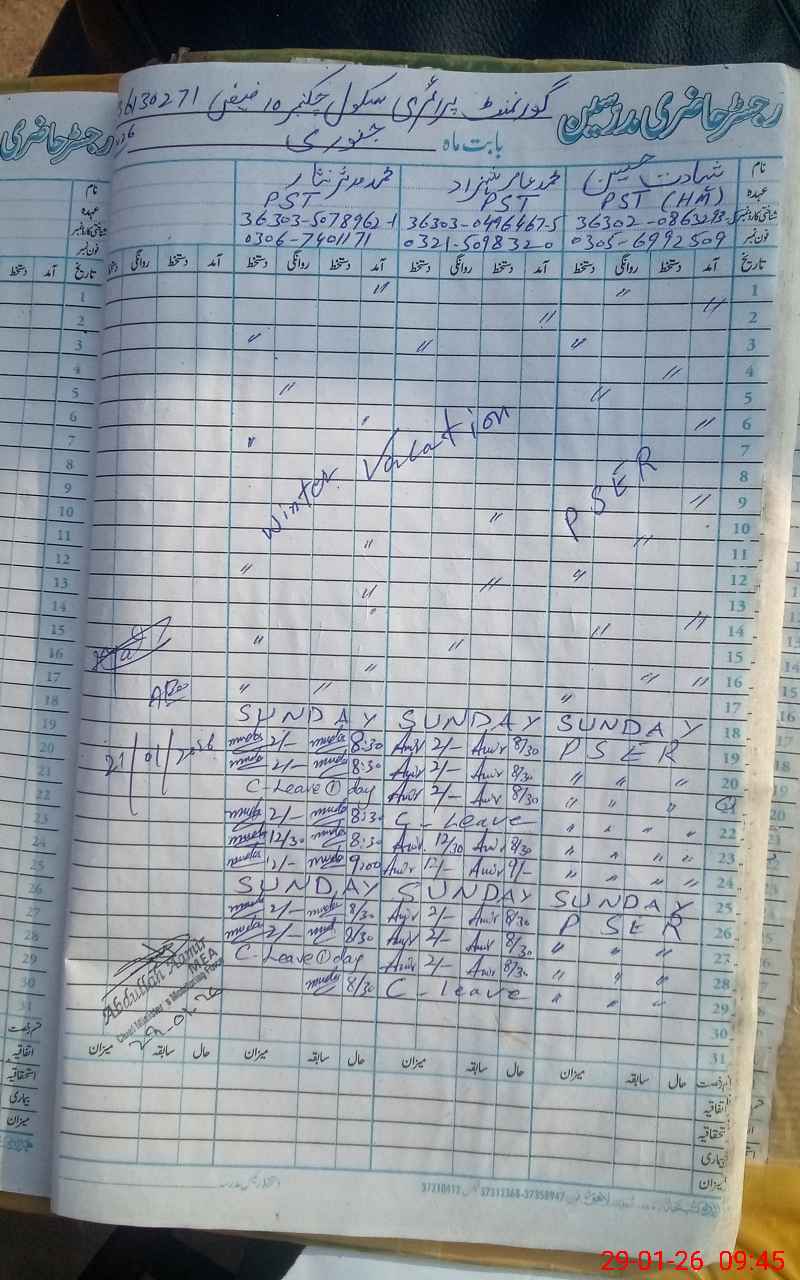 رجسٹر حاضری مدرسین گورنمنٹ پرائمری سکول چکنمبر 10 فیض 36130271
بابت ماہ جنوری 26
نام شہادت حسین محمد عامر شہزاد محمد مدثر نثار
عہدہ PST (HM) PST PST
شناختی کارڈ نمبر 36302-0863293-5 36303-0496467-5 36303-5078962-1
فون نمبر 0305-6992509 0321-5098320 0306-7401171
تاریخ آمد دستخط روانگی دستخط آمد دستخط روانگی دستخط آمد دستخط روانگی
1 〃 〃
2 〃 〃
3 〃 〃 〃
4 〃
5 〃 〃
6 〃
7 〃
Winter Vacation
8 PSER
9 〃
10 〃
11 〃 〃
12 〃 〃
13 〃 〃
14 〃 〃
15 〃 〃
16 〃 〃 〃
17 〃 〃 〃
18 SUNDAY SUNDAY SUNDAY
19 PSER Amir 2/- Amir 8/30 2/- 8:30
20 〃 〃 〃 Amir 2/- Amir 8/30 2/- 8:30
21 〃 〃 〃 Amir 2/- Amir 8/30 C-Leave ① day
21/01/2026
22 〃 〃 〃 〃 C-Leave 2/- 8:30
23 〃 〃 〃 〃 Amir 12/30 Amir 8/30 12/30 8:30
24 〃 〃 〃 〃 Amir 12/- Amir 9/- 12/- 9:00
25 SUNDAY SUNDAY SUNDAY
26 PSER Amir 2/- Amir 8/30 2/- 8/30
27 〃 〃 〃 Amir 2/- Amir 8/30 2/- 8/30
28 〃 〃 〃 Amir 2/- Amir 8/30 C-Leave ① day
29 〃 〃 〃 C-leave 8/30
30
31
Abdullah Aamir
MEA
Chief Minister's Monitoring Force
حال سابقہ میزان حال سابقہ میزان حال سابقہ میزان حال سابقہ میزان
اتفاقیہ
استحقاقیہ
بیماری
میزان
29-01-26 09:45